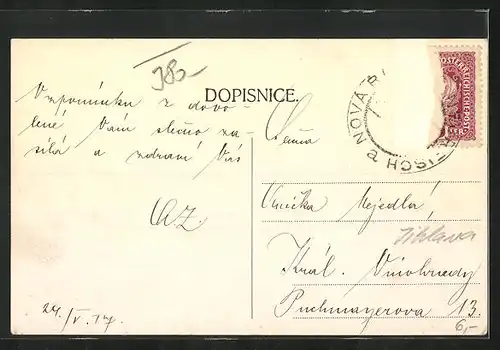 38.-
DOPISNICE.
Vzpomínku z dovo-
lené Vám slečno za-
sílá a zdraví Vás
AZ.
24./V. 17.
Slečna
Anička Nejedlá,
Jihlava
Král. Vinohrady
Puchmayerova 13.
6,-
NOVÁ
a